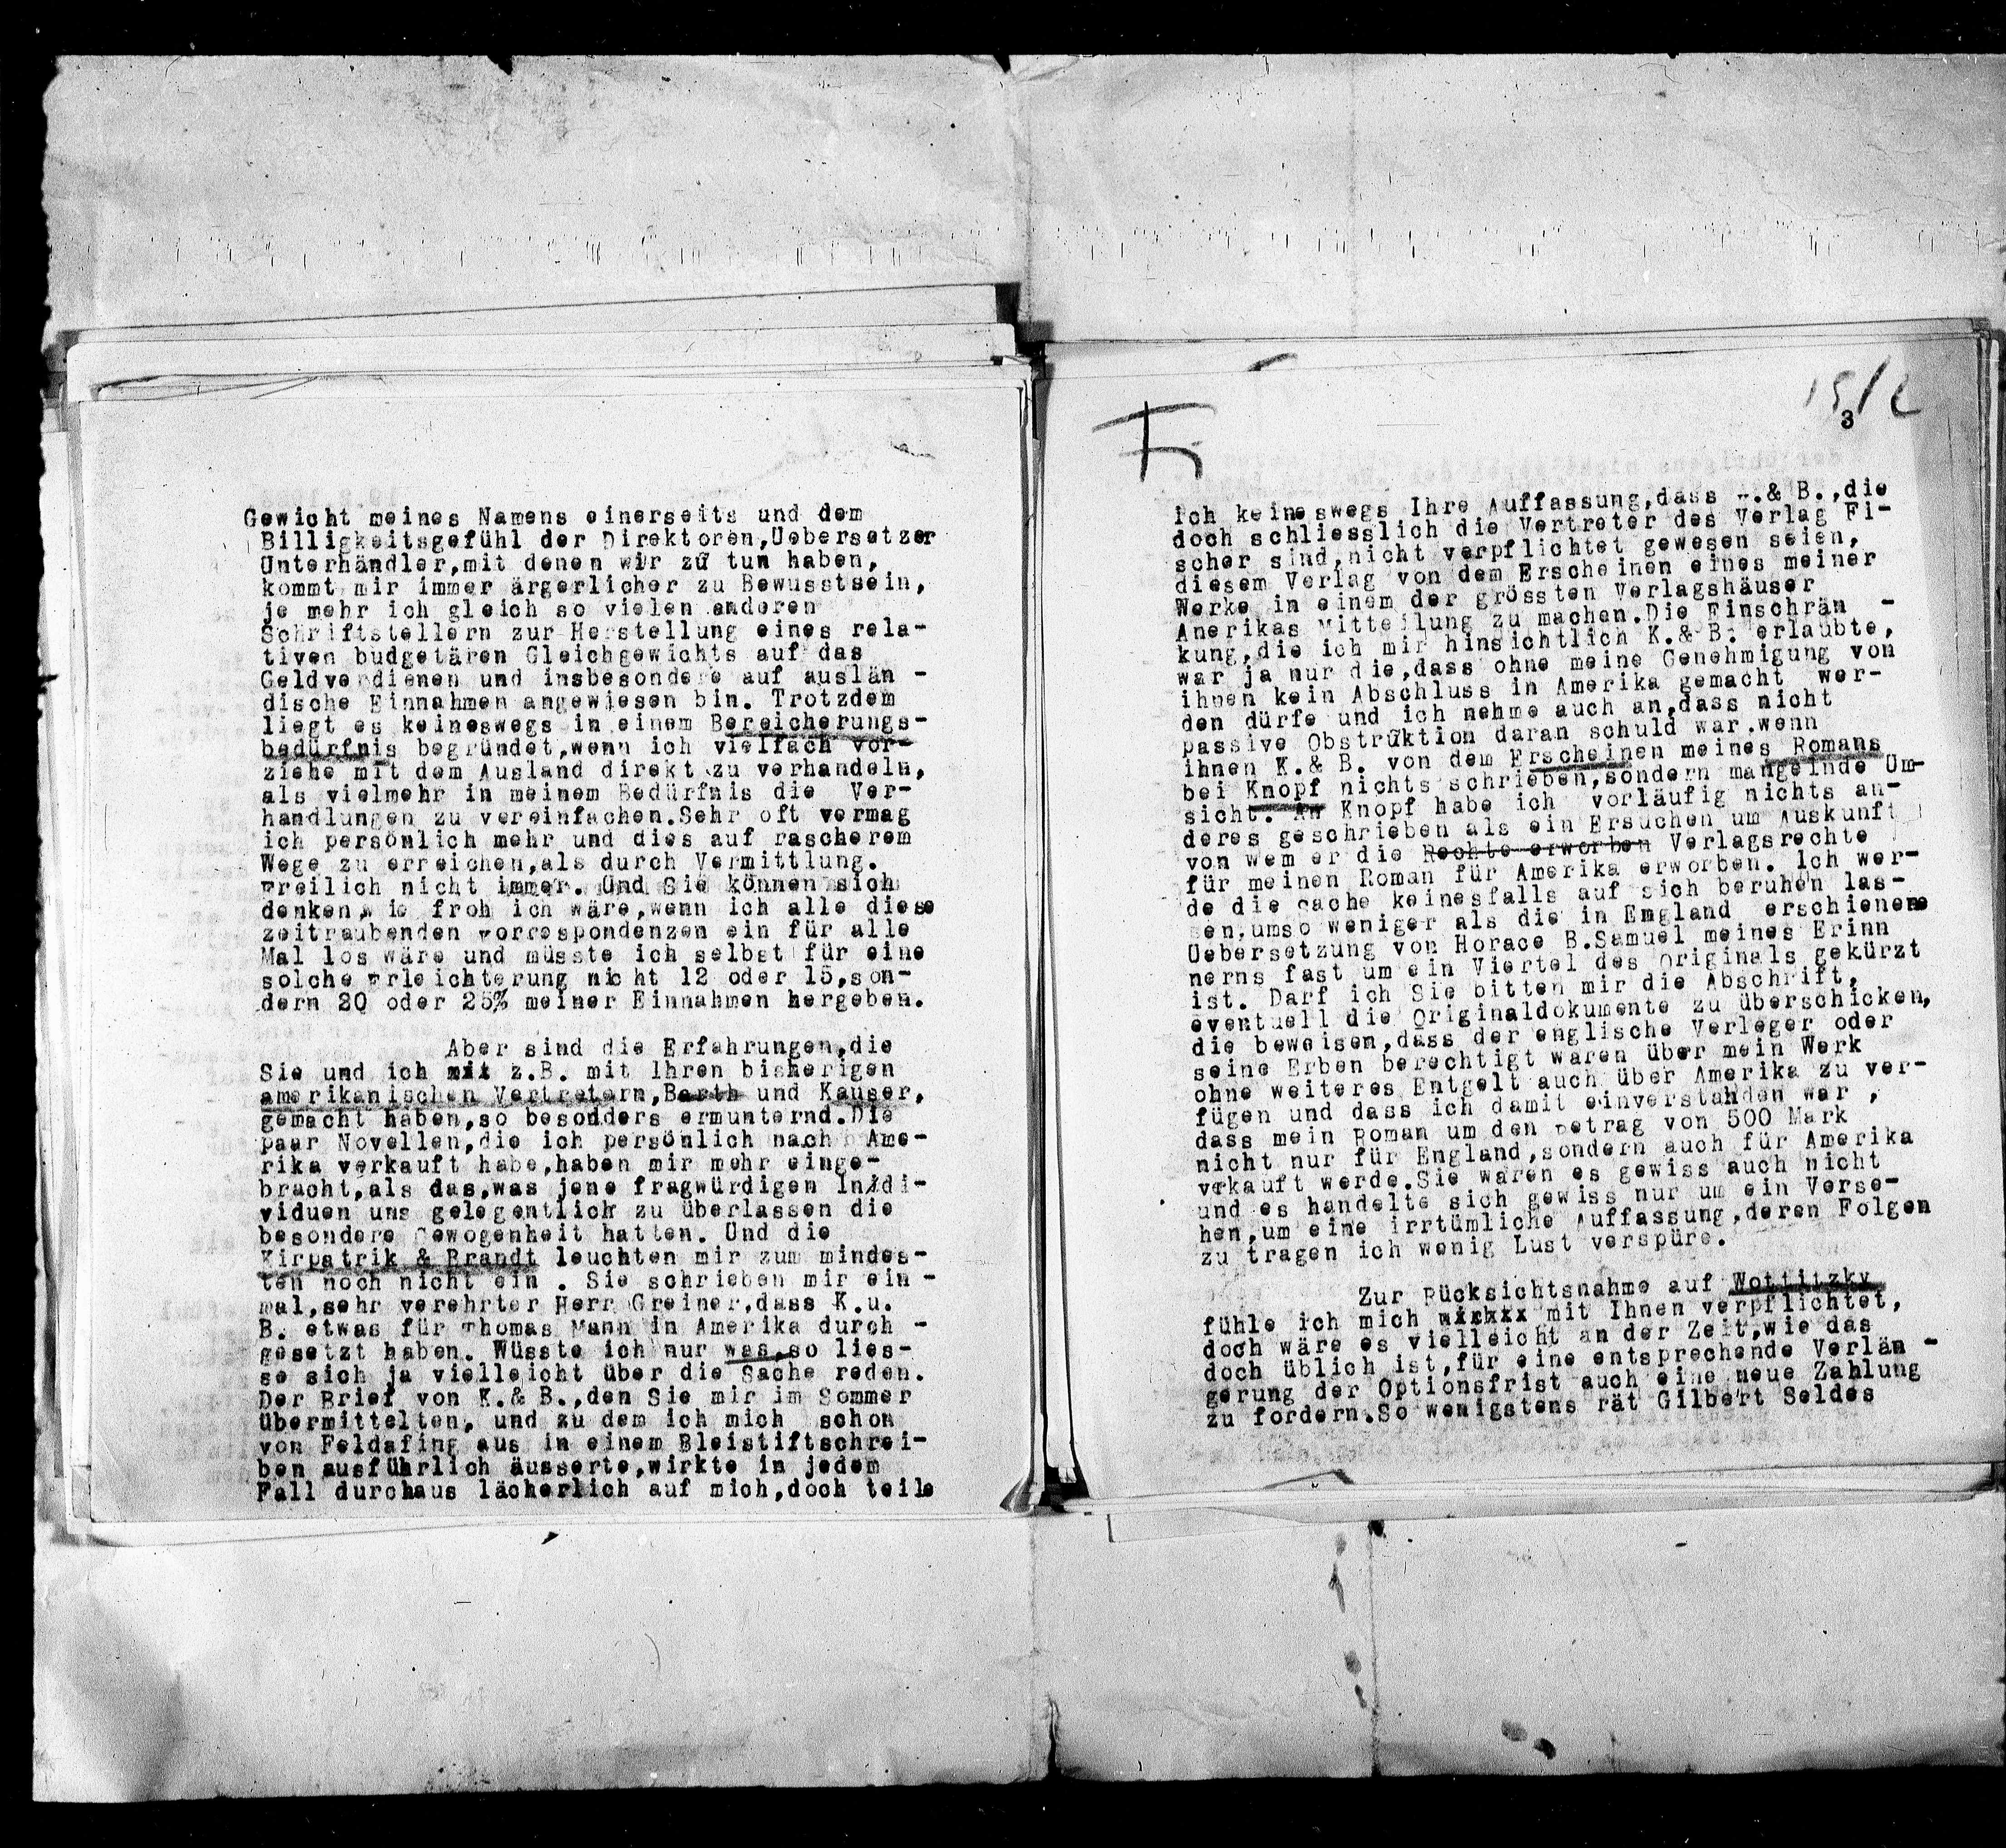 Gewicht meines Namens einerseits und dem
Billigkeitsgefühl der Direktoren,Uebersetzer
Unterhändler,mit denen wir zu tun haben,
kommt mir immer ärgerlicher zu Bewusstsein,
je mehr ich gleich so vielen anderen
Schriftstellern zur Herstellung eines rela-
tiven budgetären Gleichgewichts auf das
Geldverdienen und insbesondere auf auslän -
dische Einnahmen angewiesen bin. Trotzdem
liegt es keineswegs in einem Bereicherungs-
bedürfnis begründet,wenn ich vielfach vor-
ziehe mit dem Ausland direkt zu verhandeln,
als vielmehr in meinem Bedürfnis die Ver-
handlungen zu vereinfachen.Sehr oft vermag
ich persönlich mehr und dies auf rascherem
Wege zu erreichen,als durch Vermittlung.
Freilich nicht immer. Und Sie können sich
denken,wie froh ich wäre,wenn ich alle diese
zeitraubenden Korrespondenzen ein für alle
Mal los wäre und müsste ich selbst für eine
solche Erleichterung nicht 12 oder 15,son-
dern 20 oder 25% meiner Einnahmen hergeben.
Aber sind die Erfahrungen,die
Sie und ich mit z.B. mit Ihren bisherigen
amerikanischen Vertretern,Barth und Kauser,
gemacht haben,so besonders ermunternd.Die
paar Novellen,die ich persönlich nach Ame-
rika verkauft habe,haben mir mehr einge-
bracht,als das,was jene fragwürdigen Inidi-
viduen uns gelegentlich zu überlassen die
besondere Gewogenheit hatten. Und die
Kirpatrik & Brandt leuchten mir zum mindes-
ten noch nicht ein . Sie schrieben mir ein -
mal,sehr verehrter Herr Greiner,dass K.u.
B. etwas für Thomas Mann in Amerika durch -
gesetzt haben. Wüsste ich nur was,so lies-
se sich ja vielleicht über die Sache reden.
Der Brief von K.& B.,den Sie mir im Sommer
übermittelten, und zu dem ich mich schon
von Feldafing aus in einem Bleistiftschrei-
ben ausführlich äusserte,wirkte in jedem
Fall durchaus lächerlich auf mich,doch teile
Fi
3
ich keineswegs Ihre Auffassung,dass K.& B.,die
doch schliesslich die Vertreter des Verlag Fi-
scher sind,nicht verpflichtet gewesen seien,
diesem Verlag von dem Erscheinen eines meiner
Werke in einem der grössten Verlagshäuser
Amerikas Mitteilung zu machen.Die Einschrän -
kung,die ich mir hinsichtlich K.& B. erlaubte,
war ja nur die,dass ohne meine Genehmigung von
ihnen kein Abschluss in Amerika gemacht wer-
den dürfe und ich nehme auch an,dass nicht
passive Obstruktion daran schuld war.wenn
ihnen K.& B. von dem Erscheinen meines Romans
bei Knopf nichts schrieben,sondern mangelnde Um-
sicht. An Knopf habe ich vorläufig nichts an-
deres geschrieben als ein Ersuchen um Auskunft
von wem er die Rechte erworben Verlagsrechte
für meinen Roman für Amerika erworben. Ich wer-
de die Sache keinesfalls auf sich beruhen las-
sen,umso weniger als die in England erschienene
Uebersetzung von Horace B.Samuel meines Erinn
nerns fast um ein Viertel des Originals gekürzt
ist. Darf ich Sie bitten mir die Abschrift,
eventuell die Originaldokumente zu überschicken,
die beweisen,dass der englische Verleger oder
seine Erben berechtigt waren über mein Werk
ohne weiteres Entgelt auch über Amerika zu ver-
fügen und dass ich damit einverstanden war ,
dass mein Roman um den Betrag von 500 Mark
nicht nur für England,sondern auch für Amerika
verkauft werde.Sie waren es gewiss auch nicht
und es handelte sich gewiss nur um ein Verse-
hen,um eine irrtümliche Auffassung,deren Folgen
zu tragen ich wenig Lust verspüre.
Zur Rücksichtsnahme auf Wottitzky
fühle ich mich mit Ihnen verpflichtet,
doch wäre es vielleicht an der Zeit,wie das
doch üblich ist,für eine entsprechende Verlän -
gerung der Optionsfrist auch eine neue Zahlung
zu fordern.So wenigstens rät Gilbert Seldes